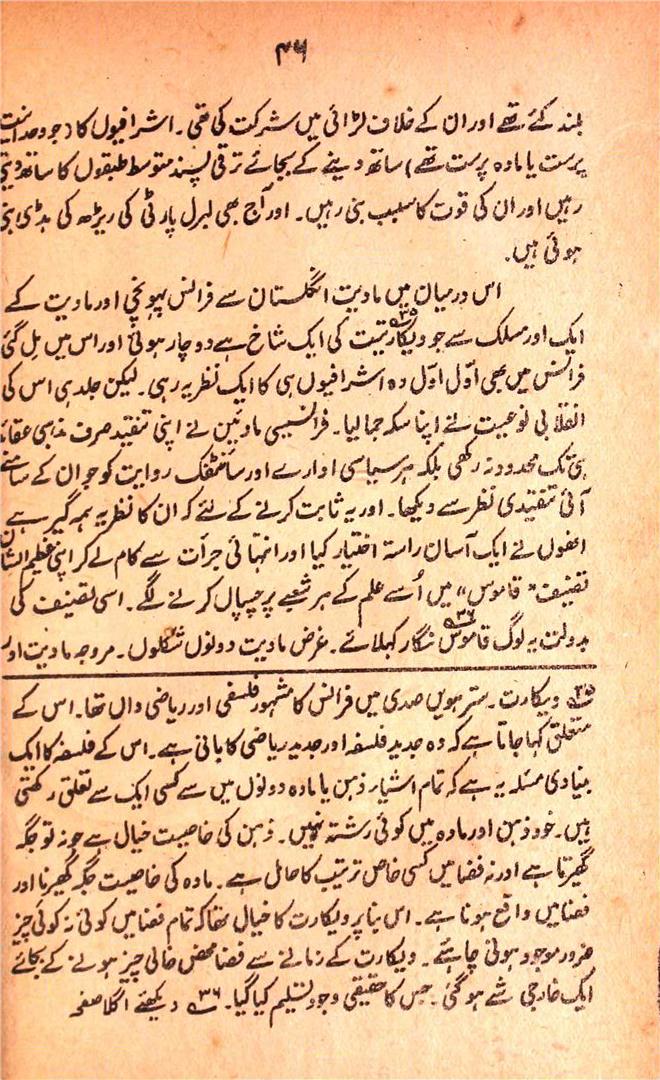 ۴۶
بلند کئے تھے اور ان کے خلاف لڑائی میں شرکت کی تھی۔ اشرافیوں کا (جو وحدانیت
پرست یا مادہ پرست تھے) ساتھ دینے کے بجائے ترقی پسند متوسط طبقوں کا ساتھ دیتی
رہیں اور ان کی قوت کا سبب بنی رہیں۔ اور آج بھی لبرل پارٹی کی ریڑھ کی ہڈی بنی
ہوئی ہیں۔
اس درمیان میں مادیت انگلستان سے فرانس پہونچی اور مادیت کے
ایک اور مسلک سے جو ویکارتیت۳۵ کی ایک شاخ ہے دو چار ہوئی اور اس میں مل گئی
فرانس میں بھی اوّل اوّل وہ اشرافیوں ہی کا ایک نظریہ رہی۔ لیکن جلد ہی اس کی
انقلابی نوعیت نے اپنا سکہ جما لیا۔ فرانسیسی مادئین نے اپنی تنقید صرف مذہبی عقائد
ہی تک محدود نہ رکھی بلکہ ہر سیاسی ادارے اور سائنٹفک روایت کو جو ان کے سامنے
آئی تنقیدی نظر سے دیکھا۔ اور یہ ثابت کرنے کے لئے کہ ان کا نظریہ ہمہ گیر ہے
انھوں نے ایک آسان راستہ اختیار کیا اور انتہائی جرأت سے کام لے کر اپنی عظیم الشان
تصنیف "قاموس" میں اُسے علم کے ہر شعبے پر چسپاں کرنے لگے۔ اسی تصنیف کی
بدولت یہ لوگ قاموس۳۶ نگار کہلائے۔ غرض مادیت دونوں شکلوں۔ مروجہ مادیت اور
۳۵ ویکارت۔ سترھویں صدی میں فرانس کا مشہور فلسفی اور ریاضی داں تھا۔ اس کے
متعلق کہا جاتا ہے کہ وہ جدید فلسفہ اور جدید ریاضی کا بانی ہے۔ اس کے فلسفہ کا ایک
بنیادی مسئلہ یہ ہے کہ تمام اشیار ذہن یا مادہ دونوں میں سے کسی ایک سے تعلق رکھتی
ہیں۔ خود ذہن اور مادہ میں کوئی رشتہ نہیں۔ ذہن کی خاصیت خیال ہے جو نہ تو جگہ
گھیرتا ہے اور نہ فضا میں کسی خاص ترتیب کا حامل ہے۔ مادہ کی خاصیت جگہ گھیرنا اور
فضا میں واقع ہونا ہے۔ اس بنا پر ویکارت کا خیال تھا کہ تمام فضا میں کوئی نہ کوئی چیز
ضرور موجود ہونی چاہئے۔ ویکارت کے زمانے سے فضا محض خالی چیز ہونے کے بجائے
ایک خارجی شے ہو گئی۔ جس کا حقیقی وجود تسلیم کیا گیا۔ ۳۶ دیکھئے اگلا صفحہ